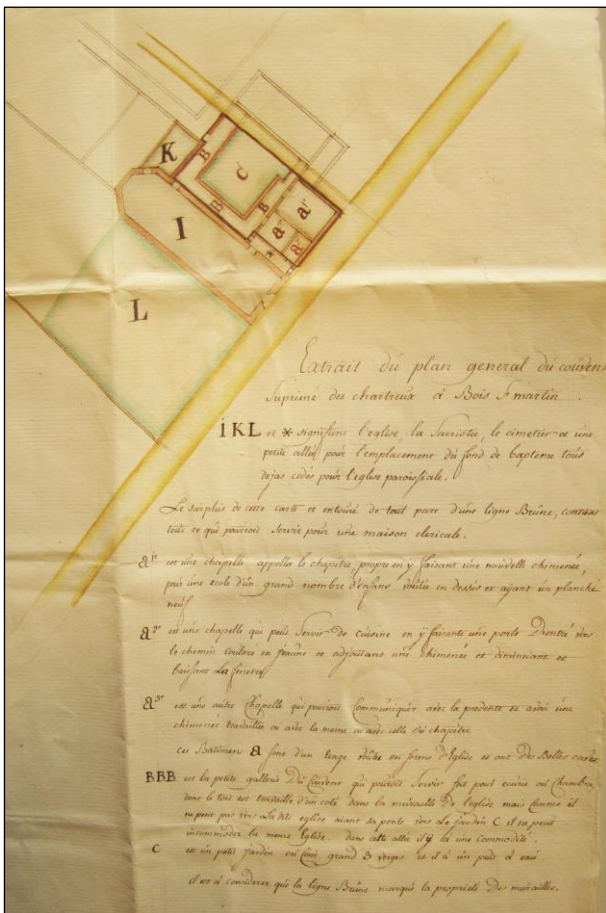 K
B
C
I
B
B
a1r
a2r
a3r
L
Extrait du plan general du couvent
Suprimé des chartreux à Bois St martin.
IKL et * signifient l'eglise, la Sacristie, le cimetier et une
petite allée pour l'emplacement du fond de bapteme tous
dejas cedés pour l'eglise paroissiale.
Le surplus de cette carte et entouré de tout part d'une ligne Brune, contient
tout ce qui pourroit servir pour une maison clericale.
a1r est une chapelle appellé le chapitre, propre en y faisant une nouvelle chimenée,
pour une ecole d'un grand nombre d'enfans voutée en dessus et ayant un planché
neuf
a2r est une chapelle qui peut Servir de cuisine en y faisante une porte D'entré vers
le chemin couloré en jeaune et adjoutant une chimenée et diminuant et
baissant La fenetre
a3r est une autre Chapelle qui pourroit Communiquer avec la precedente et avoir une
chimenée travaillée ou avec la meme ou avec celle du chapitre
ces Batimens a sont d'un etage voutes en forme d'Eglise et ont des Belles caves
BBB est la petite gallerie Du Couvent qui pourroit Servir soit pour ecurie ou Chambre,
dont le toit est travaillé d'un coté dans la muraille de l'eglise mais Comme il
ne pent pas vers La dite eglise aiant sa pente vers Le Jardin C il ne peut
incommoder la meme Eglise. dans cette allée il y a une commodité.
C est un petit Jardin ou Cour grand 3 verges et il a un puit d'eau
il est a considerer que la ligne Brune marque la proprieté Des murailles.